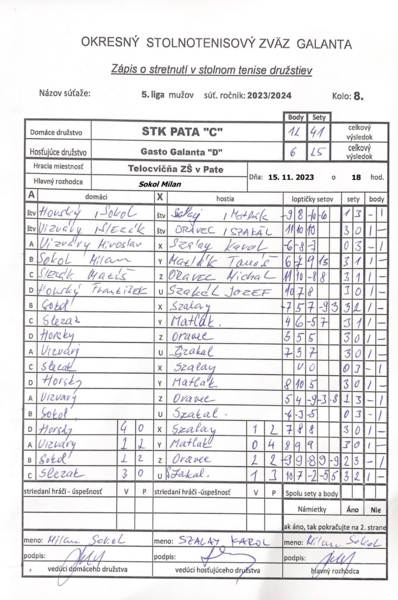 OKRESNÝ STOLNOTENISOVÝ ZVÄZ GALANTA
Zápis o stretnutí v stolnom tenise družstiev
Názov súťaže: 5. liga mužov súť. ročník: 2023/2024 Kolo: 8.
Body Sety
Domáce družstvo STK PATA "C" 12 41 celkový výsledok
Hosťujúce družstvo Gasto Galanta "D" 6 25 celkový výsledok
Hracia miestnosť Telocvičňa ZŠ v Pate
Hlavný rozhodca Sokol Milan Dňa: 15. 11. 2023 o 18 hod.
A domáci X hostia loptičky setov sety body
štv Horský , Sokol štv Szalay , Matlák -9 8 -10 -6 1 3 - 1
štv Vizváry , Slezák štv Oravec , Szakál 11 10 10 3 0 1 -
A Vizváry Miroslav X Szalay Karol -6 -8 -7 0 3 - 1
B Sokol Milan Y Matlák Tomáš 6 -7 9 13 3 1 1 -
C Slezák Matúš Z Oravec Michal 11 10 -8 8 3 1 1 -
D Horský František U Szakál Jozef 10 7 8 3 0 1 -
B Sokol X Szalay -7 5 7 -9 3 3 2 1 -
C Slezák Y Matlák 4 6 -5 7 3 1 1 -
D Horský Z Oravec 5 5 5 3 0 1 -
A Vizváry U Szakal 7 3 7 3 0 1 -
C Slezak X Szalay 0 3 - 1
D Horský Y Matlák 8 10 5 3 0 1 -
A Vizváry Z Oravec 5 -4 -9 -3 -8 1 3 - 1
B Sokol U Szakal -4 -3 -5 0 3 - 1
D Horský 4 0 X Szalay 1 2 7 8 8 3 0 1 -
A Vizváry 2 2 Y Matlák 0 4 8 9 9 3 0 1 -
B Sokol 1 2 Z Oravec 2 2 -9 9 8 -9 -9 2 3 - 1
C Slezak 3 0 U Szakal 1 3 10 7 -2 -5 5 3 2 1 -
striedaní hráči - úspešnosť V P striedaní hráči -úspešnosť V P Spolu sety a body
Námietky Áno Nie
ak áno, tak pokračujte na 2. strane
meno: Milan Sokol meno: SZALAY KAROL meno: Milan Sokol
podpis: podpis: podpis:
vedúci domáceho družstva vedúci hosťujúceho družstva hlavný rozhodca